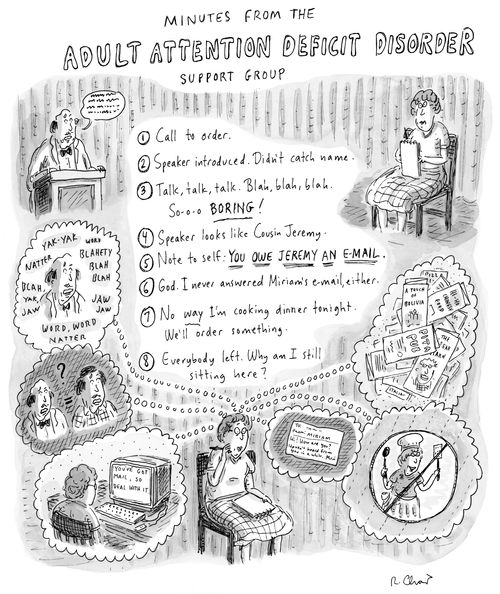 MINUTES FROM THE
ADULT ATTENTION DEFICIT DISORDER
SUPPORT GROUP
1 Call to order.
2 Speaker introduced. Didn't catch name.
3 Talk, talk, talk. Blah, blah, blah.
So-o-o BORING!
4 Speaker looks like Cousin Jeremy.
5 Note to self: YOU OWE JEREMY AN E-MAIL.
6 God. I never answered Miriam's e-mail, either.
7 No way I'm cooking dinner tonight.
We'll order something.
8 Everybody left. Why am I still
sitting here?
YAK-YAK
WORD
NATTER
BLAHETY
BLAH
BLAH
BLAH,
YAK,
JAW
JAW
JAW
WORD, WORD
NATTER
?
=
YOU'VE GOT
MAIL, SO
DEAL WITH IT
TO:
FROM: MIRIAM
Hi! How are you?
Haven't heard from
you in a while.
PIZZA
A TOUCH
OF
BOLIVIA
FOOD
THE
R. Chast